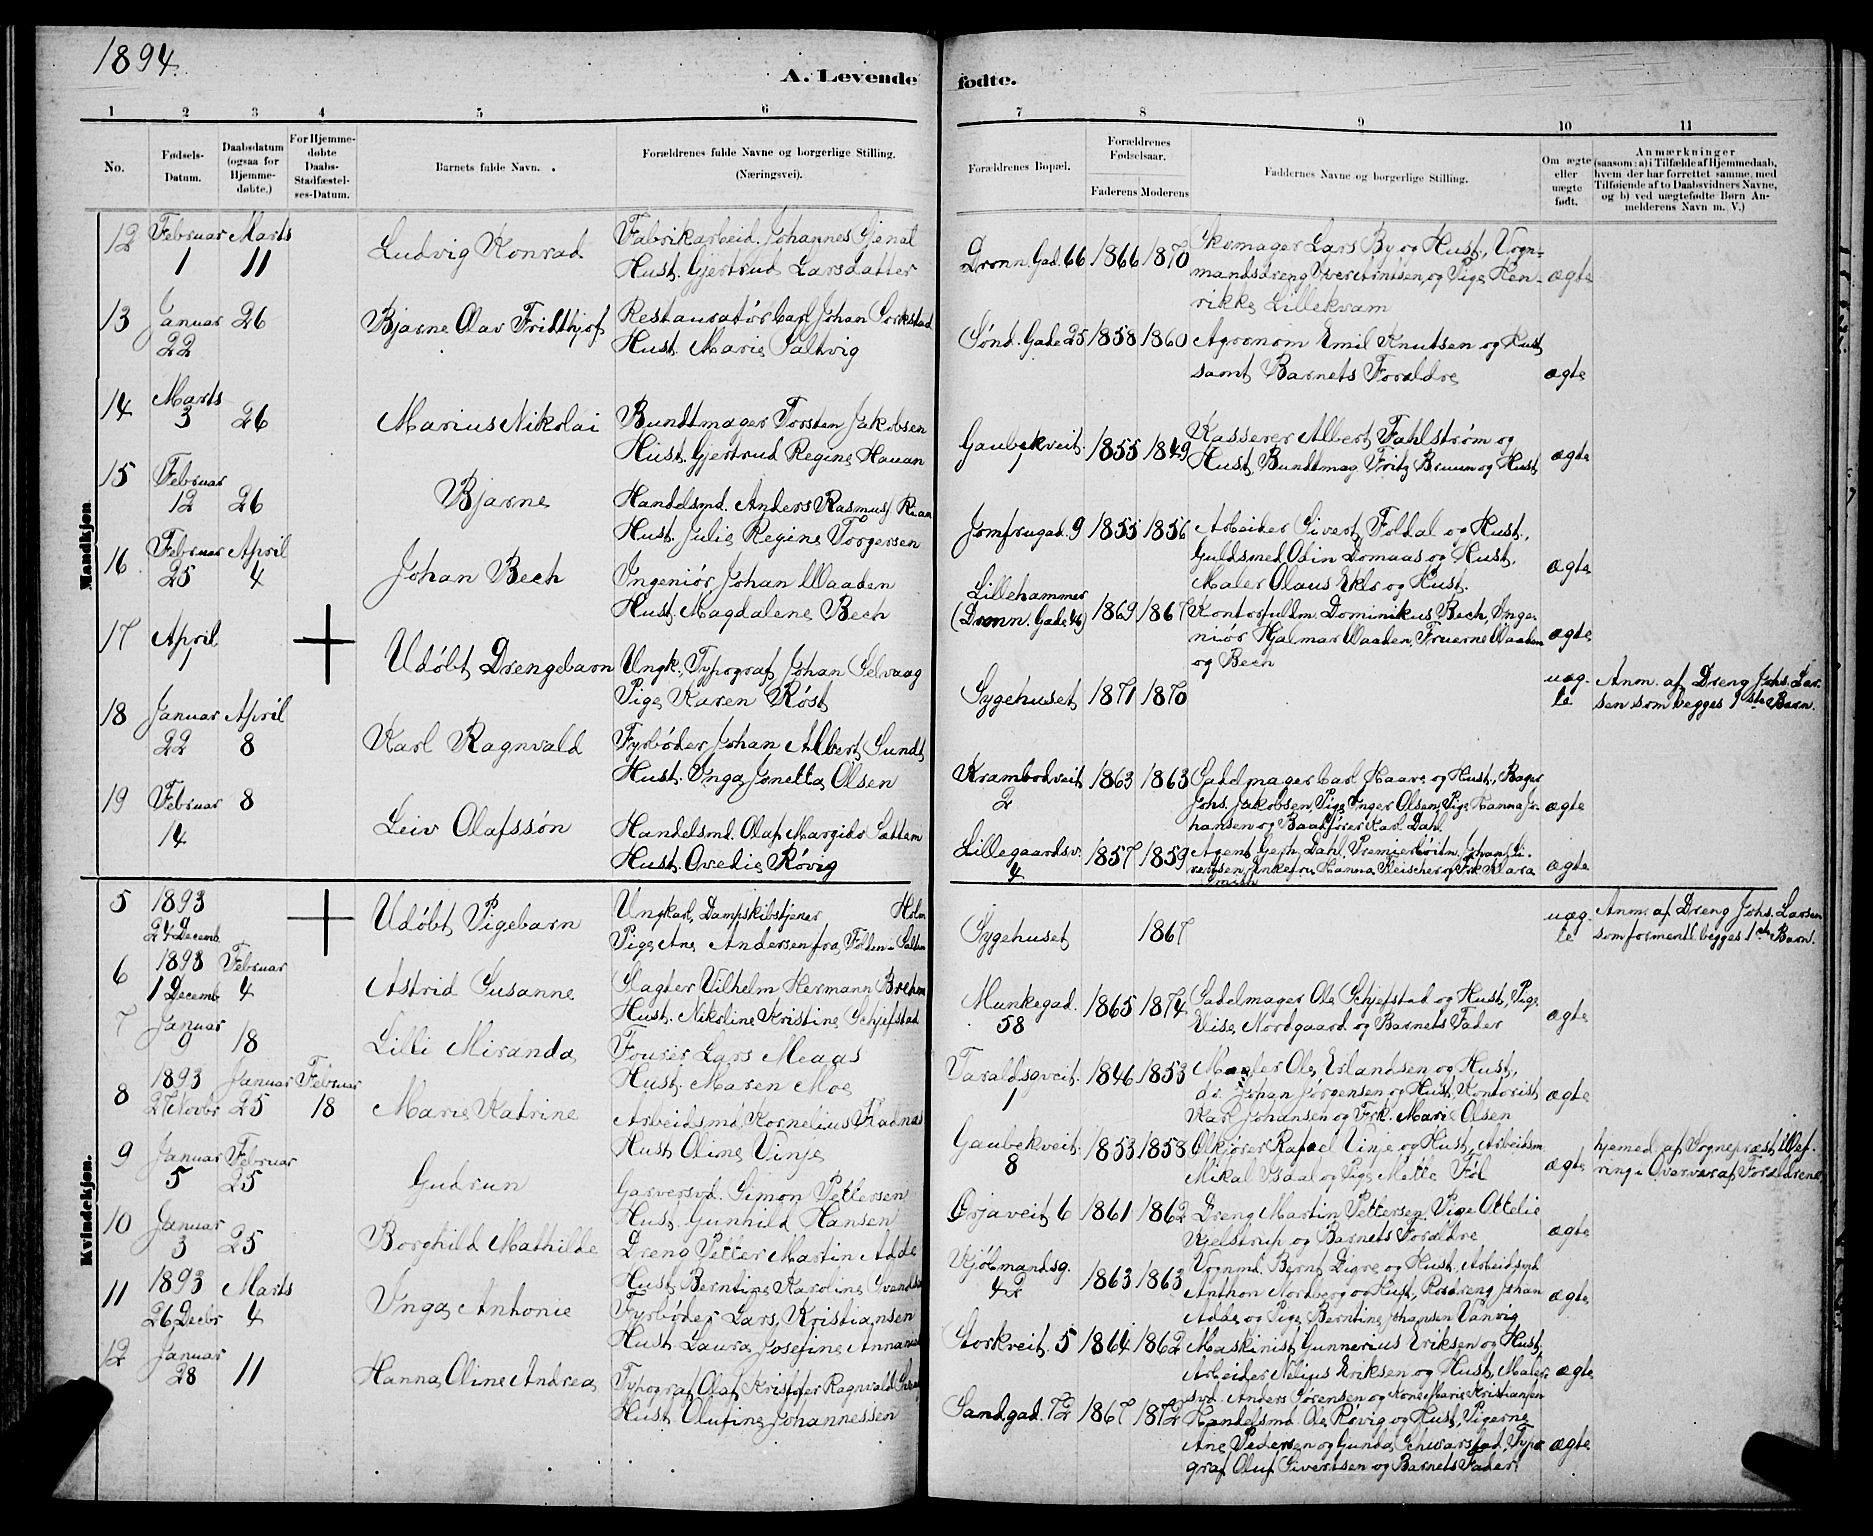 1894.
A. Levende fødte.
1 2 3 4 5 6 7 8 9 10 11
No.
Fødsels-
Datum.
Daabsdatum
(ogsaa for
Hjemme-
døbte.)
For Hjemme-
døbte
Daabs-
Stadfæstel-
ses-Datum.
Barnets fulde Navn.
Forældrenes fulde Navne og borgerlige Stilling.
(Næringsvei).
Forældrenes Bopæl.
Forældrenes
Fødselsaar.
Faderens Moderens
Faddernes Navne og borgerlige Stilling.
Om ægte
eller
uægte
født.
Anmærkninger
(saasom: a) i Tilfælde af Hjemmedaab,
hvem der har forrettet samme, med
Tilføiende af to Daabsvidners Navne,
og b) ved uægtefødte Børn An-
melderens Navn m. V.)
Mandkjøn
12 Februar Marts
1 11
Ludvig Konrad
Fabrikarbeid. Johannes Gjenal
Hust. Gjertrud Larsdatter
Dronn. Gad. 66 1866 1870
Skomager Lars By og Hust, Vogn-
mandsdreng Iver Arntsen, og Pige Hen-
rikke Lillekvam
ægte
13 Januar 26
22
Bjarne Olav Fridthjof
Restauratør Carl Johan Sorkstad
Hust. Marie Saltvig
Sønd. Gade 25 1858 1860
Agronom Emil Knutsen og Hust
samt Barnets Forældre
ægte
14 Marts
3 26
Marius Nikolai
Bundtmager Torsten Jakobsen
Hust. Gjertrud Regine Hauan
Gaubekveit. 1855 1849
Kasserer Albert Fahlstrøm og
Hust, Bundtmag Fritz Bruun og Hust
ægte
15 Februar
12 26
Bjarne
Handelsmd. Anders Rasmus Rian
Hust. Julie Regine Torgersen
Jomfrugad. 9 1855 1856
Arbeider Sivert Foldal og Hust.,
Guldsmed Odin Domaas og Hust,
Maler Olaus Ekle og Hust.
ægte
16 Februar April
25 4
Johan Bech
Ingeniør Johan Waaden
Hust. Magdalene Bech
Lillehammer
(Dronn. Gade 46) 1869 1867
Kontorfuldm. Dominikus Bech, Inge-
niør Hjalmar Waaden, Fruerne Waaden
og Bech
ægte
17 April
1
Udøbt Drengebarn
Ungk., Typograf Johan Selvaag
Pige Karen Røst
Sygehuset 1871 1870
uæg-
te
Anm. af Dreng Johs. Lar-
sen som begges 1ste Barn.
18 Januar April
22 8
Karl Ragnvald
Fyrbøder Johan Albert Sundt
Hust. Inga Jonetta Olsen
Krambodveit
2 1863 1863
Sadelmager Carl Haave og Hust., Bager
Johs. Jakobsen, Pige Inger Olsen, Pige Hanna Jo-
hansen og Baadfører Karl Dahl.
ægte
19 Februar 8
14
Leiv Olafssøn
Handelsmd. Olaf Margido Sættem
Hust. Ovedie Røvig
Lillegaardsv.
4 1857 1859
Agent Gerh. Dahl, Premierløitn. Johan Si-
vertsen, Enkefru Hanna Fleischer og Frk. Klara
ægte
Kvindekjøn.
5 1893
24 Decemb.
Udøbt Pigebarn
Ungkarl, Dampskibstjener Holm
Pige Ane Andersen fra Folden i Salten
Sygehuset 1867
uæg-
te
Anm. af Dreng Johs. Larsen
som formentl. begges 1ste Barn.
6 1893 Februar
1 Decemb 4
Astrid Susanne
Slagter Vilhelm Hermann Brehm
Hust. Nikoline Kristine Schjefstad
Munkegad.
58 1865 1874
Sadelmager Ole Schjefstad og Hust, Pige
Elise Nordgaard og Barnets Fader
ægte
7 Januar
9 18
Lilli Miranda
Fourer Lars Meaas
Hust. Maren Moe
Taraldsgveit.
1 1846 1853
Maaler Ole Erlandsen og Hust,
do. Johan Jørgensen og Hust, Kontorist
Karl Johansen og Frk. Marie Olsen
ægte
8 1893 Januar Februar
27 Novbr 25 18
Marie Katrine
Arbeidsmd. Kornelius Fladnæs
Hust Oline Vinje
Gaubekveit
8 1853 1858
Olkjører Rafael Vinje og Hust, Arbeidsm.
Mikal Isaal og Pige Mette Føl
ægte
hjemed. af Sognepræst
i Overvær af Forældrene
9 Januar Februar
5 25
Gudrun
Garversvd. Simon Pettersen
Hust. Gunhild Hansen
Ørjaveit 6 1861 1862
Dreng Martin Pettersen, Pige Ottelie
Kjelstrup og Barnets Forældre
ægte
10 Januar
3 25
Borghild Mathilde
Dreng Petter Martin Adde
Hust. Berntine Karoline Svends
Kjøbmandsg.
42 1863 1863
Vognmd. Bernt Digre og Hust, Arbeidsmd
Anthon Nordberg og Hust, Postdreng Johan
Adde og Pige Berntine Johansen Vanvig
ægte
11 1893 Marts
26 Decbr 4
Inga Antonie
Fyrbøder Lars Kristiansen
Hust. Laura Josefine
Storkveit. 5 1864 1862
Maskinist Gunnerius Eriksen og Hust,
Arbeider Nelius Eriksen og Hust, Maler-
svd. Anders Sørensen og Kone Marie Kristiansen
ægte
12 Januar
28 11
Hanna Oline Andrea
Typograf Olaf Kristofer Ragnvald
Hust. Olufine Johannessen
Sandgad. 72 1867 1872
Handelsmd. Ole Røvig og Hust, Pigerne
Ane Pedersen og Gunda Schwarstad, Typo-
graf Oluf Sivertsen og Barnets Fader
ægte